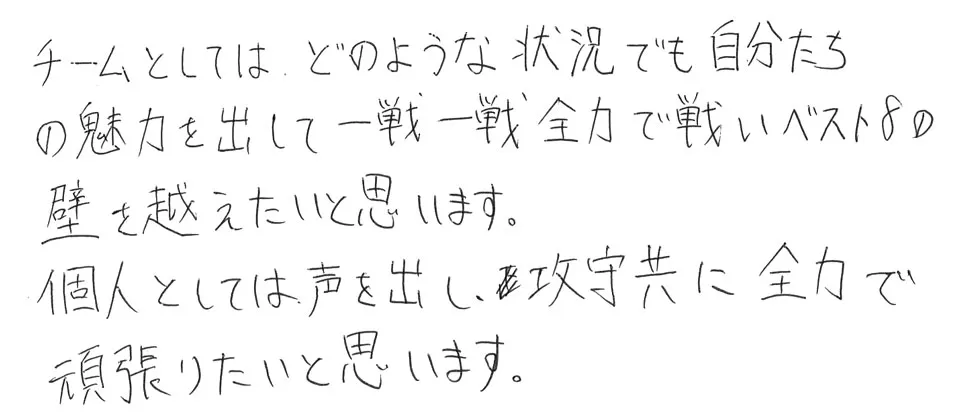 チームとしては、どのような状況でも自分たち
の魅力を出して一戦一戦全力で戦いベスト8の
壁を越えたいと思います。
個人としては声を出し、攻守共に全力で
頑張りたいと思います。